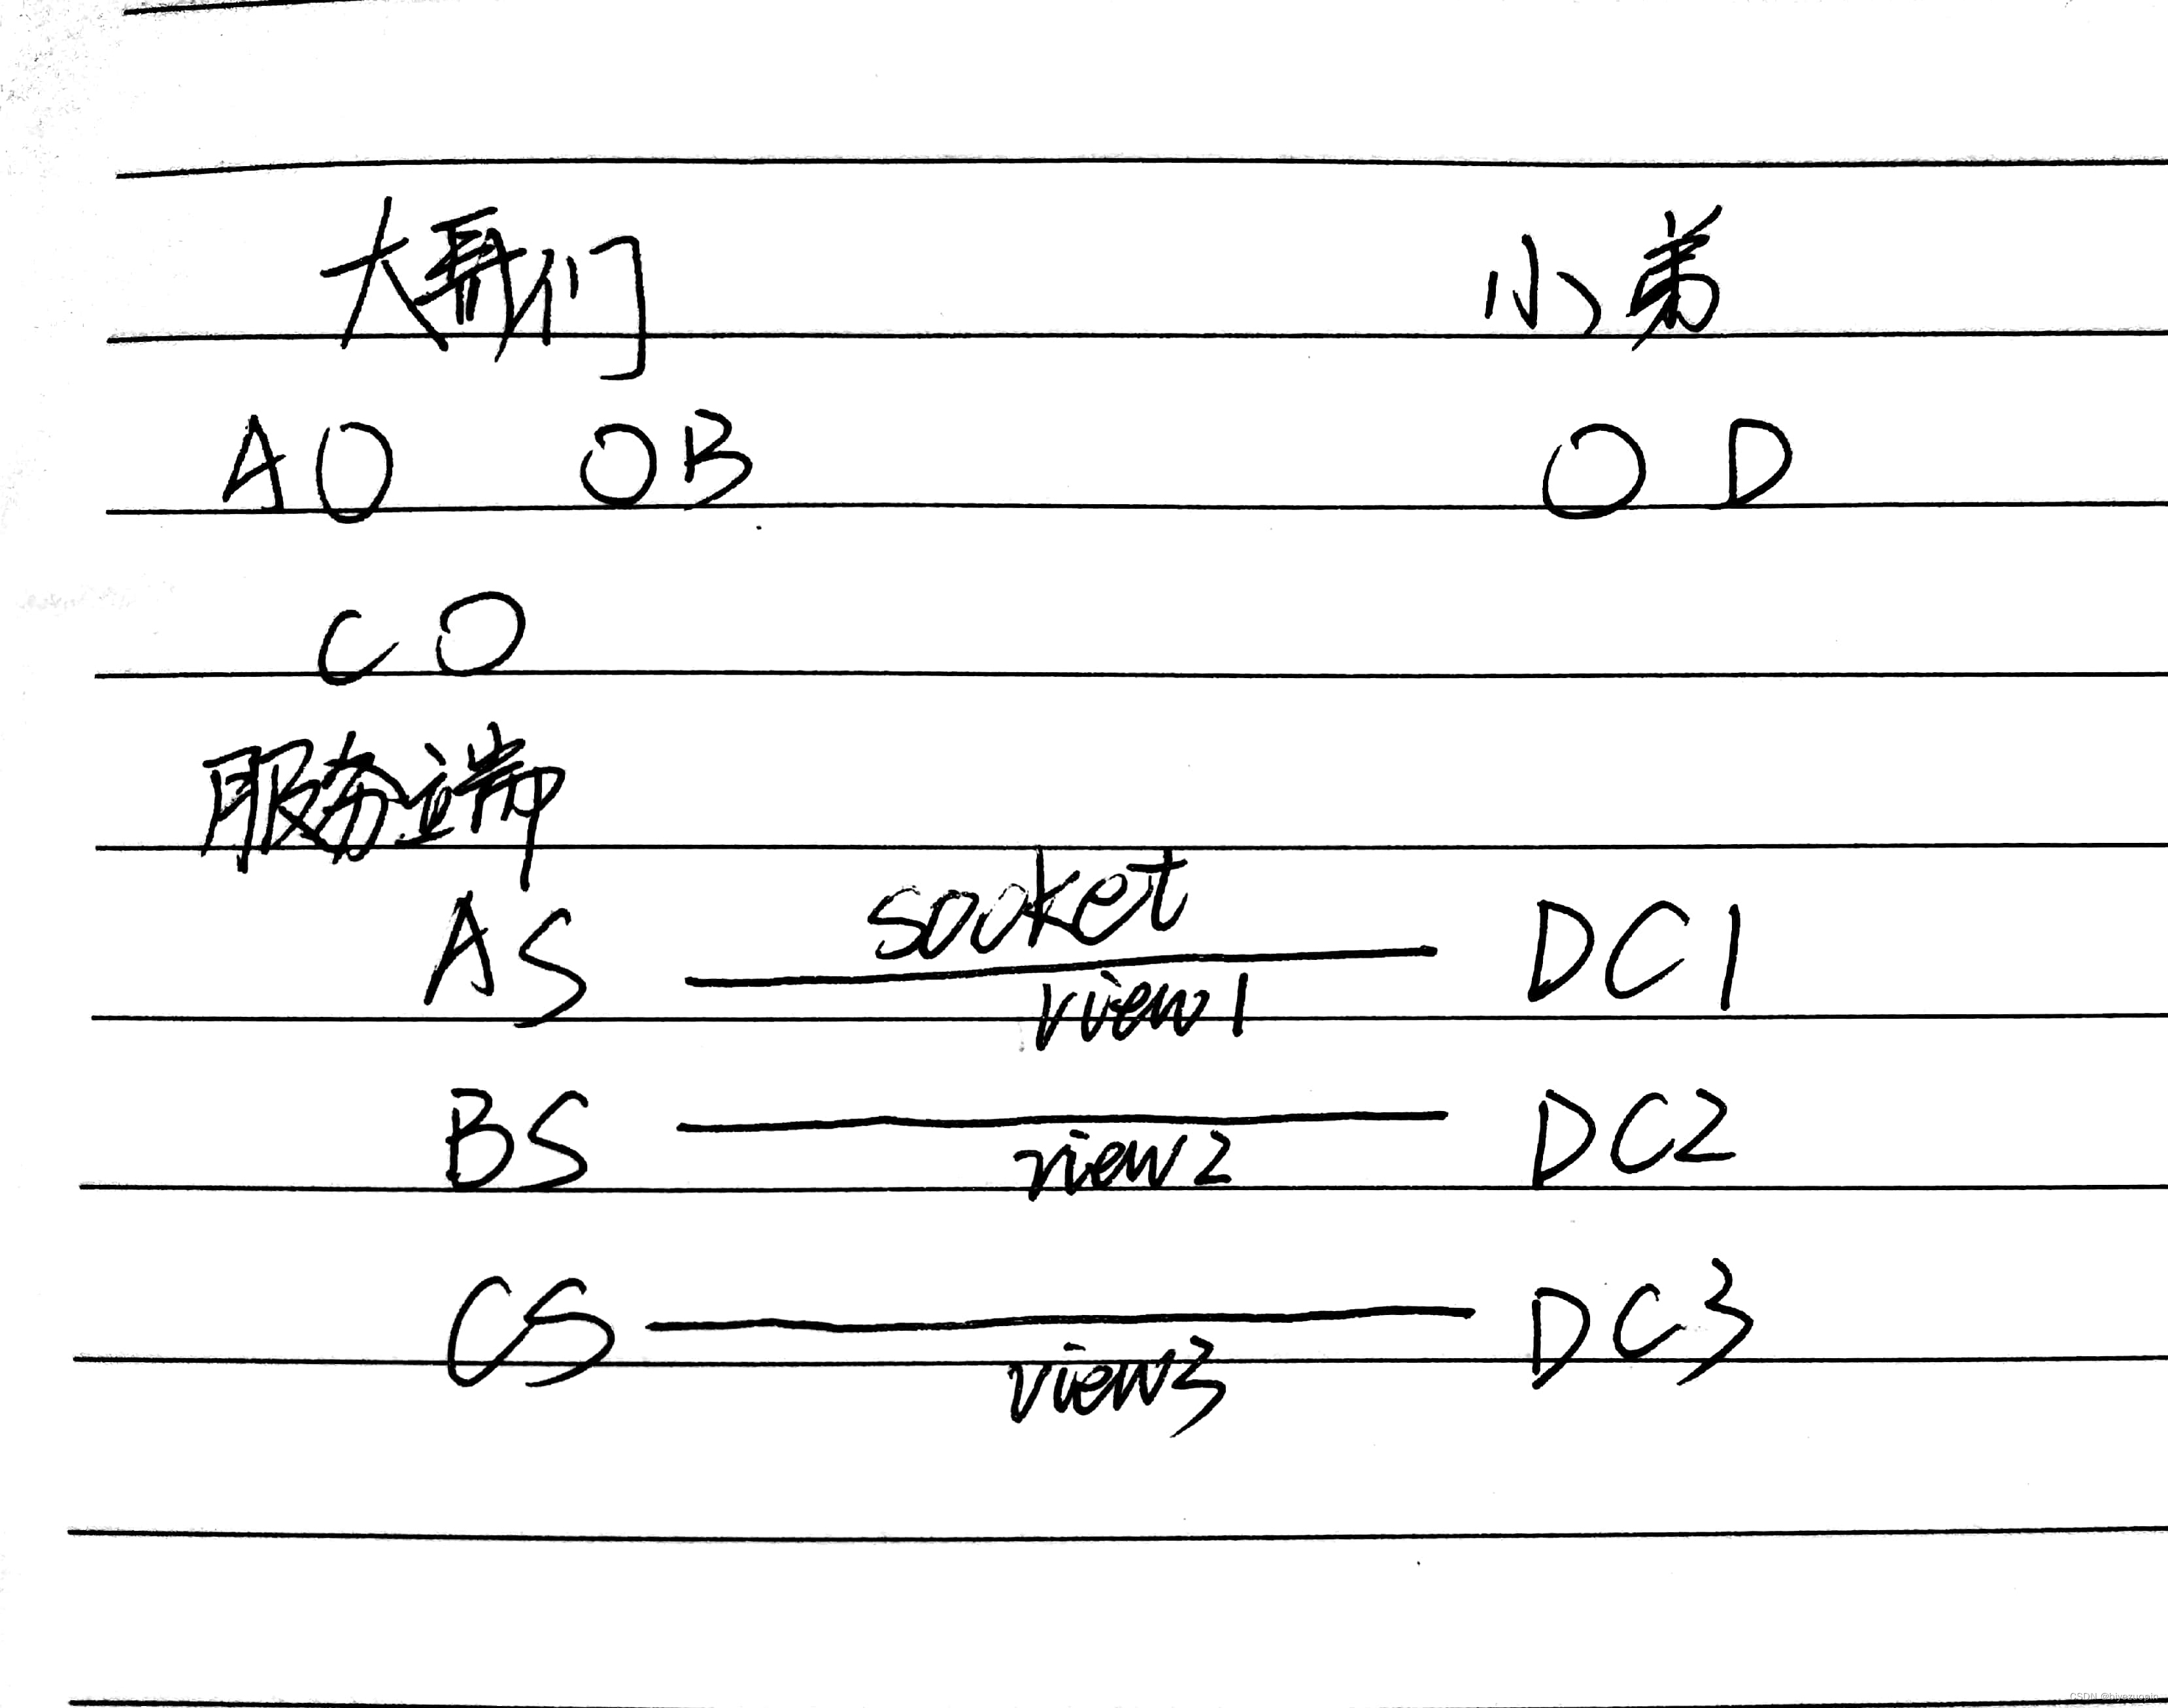 大哥们 小弟
A O O B O D
C O
服务端
socket
AS DC1
view1
BS DC2
view2
CS DC3
view3
CSDN @biyezuopin